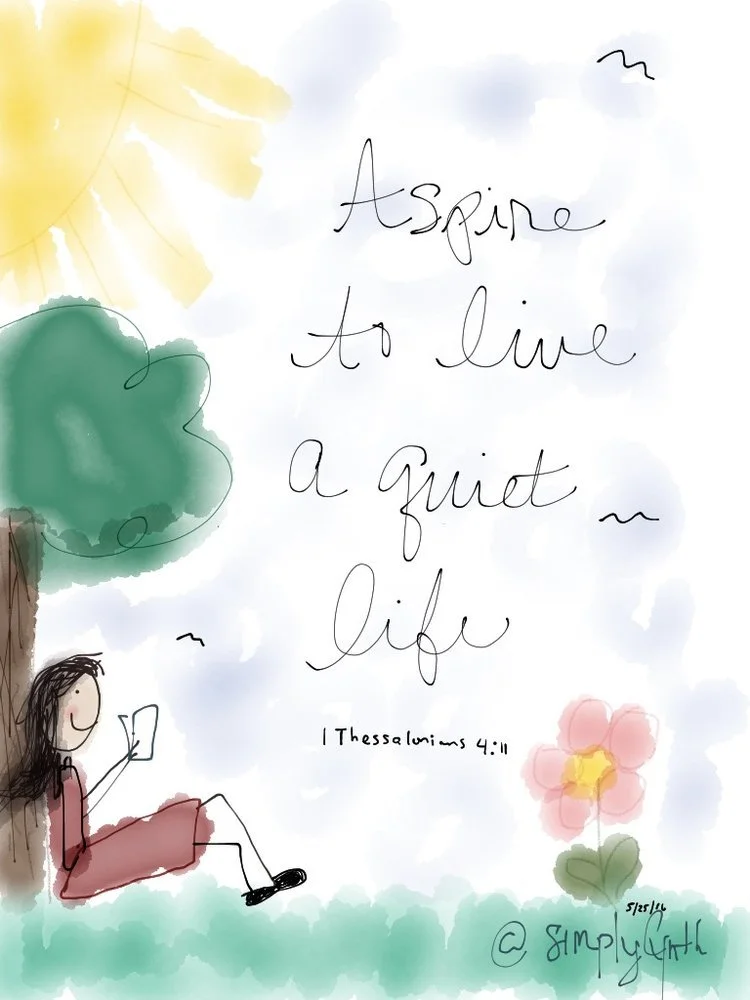 Aspire
to live
a quiet
life
1 Thessalonians 4:11
5/25/16
@ SimplyCynth